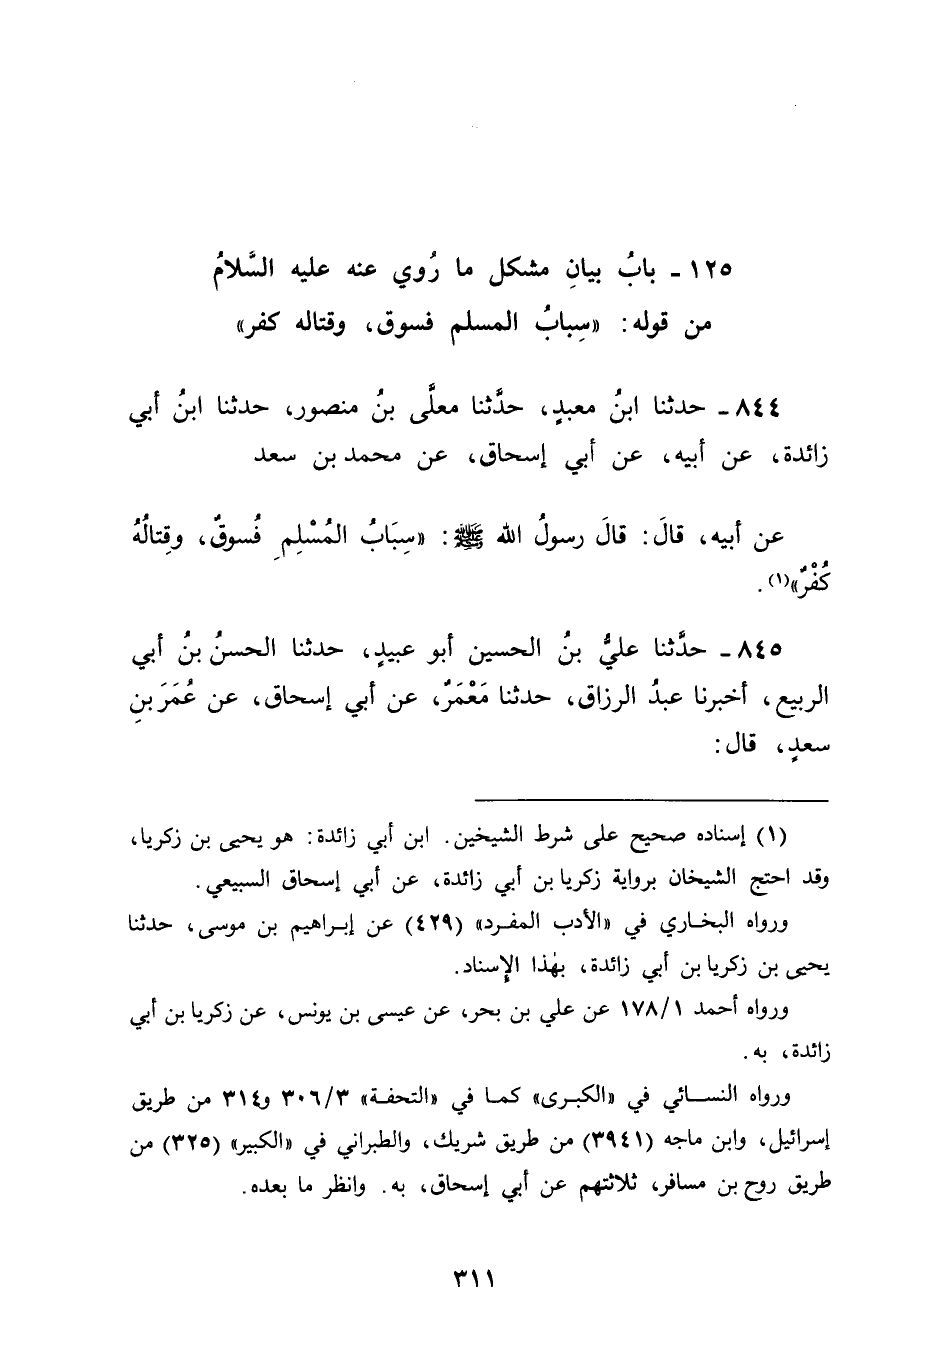 ١٢٥ ـ بابُ بيانِ مشكل ما رُوي عنه عليه السَّلامُ
من قوله: «سِبابُ المسلم فسوق، وقتاله كفر»
٨٤٤ ـ حدثنا ابنُ معبدٍ، حدَّثنا معلَّى بنُ منصور، حدثنا ابنُ أبي
زائدة، عن أبيه، عن أبي إسحاق، عن محمد بن سعد
عن أبيه، قالَ: قالَ رسولُ الله ﷺ: «سِبَابُ المُسْلِمِ فُسوقٌ، وقِتالُهُ
كُفْرٌ»(١).
٨٤٥ ـ حدَّثنا عليُّ بنُ الحسين أبو عبيدٍ، حدثنا الحسنُ بنُ أبي
الربيع، أخبرنا عبدُ الرزاق، حدثنا مَعْمَرٌ، عن أبي إسحاق، عن عُمَرَ بنِ
سعدٍ، قال:
(١) إسناده صحيح على شرط الشيخين. ابن أبي زائدة: هو يحيى بن زكريا،
وقد احتج الشيخان برواية زكريا بن أبي زائدة، عن أبي إسحاق السبيعي.
ورواه البخاري في «الأدب المفرد» (٤٢٩) عن إبراهيم بن موسى، حدثنا
يحيى بن زكريا بن أبي زائدة، بهٰذا الإسناد.
ورواه أحمد ١٧٨/١ عن علي بن بحر، عن عيسى بن يونس، عن زكريا بن أبي
زائدة، به.
ورواه النسائي في «الكبرى» كما في «التحفة» ٣٠٦/٣ و٣١٤ من طريق
إسرائيل، وابن ماجه (٣٩٤١) من طريق شريك، والطبراني في «الكبير» (٣٢٥) من
طريق روح بن مسافر، ثلاثتهم عن أبي إسحاق، به. وانظر ما بعده.
٣١١